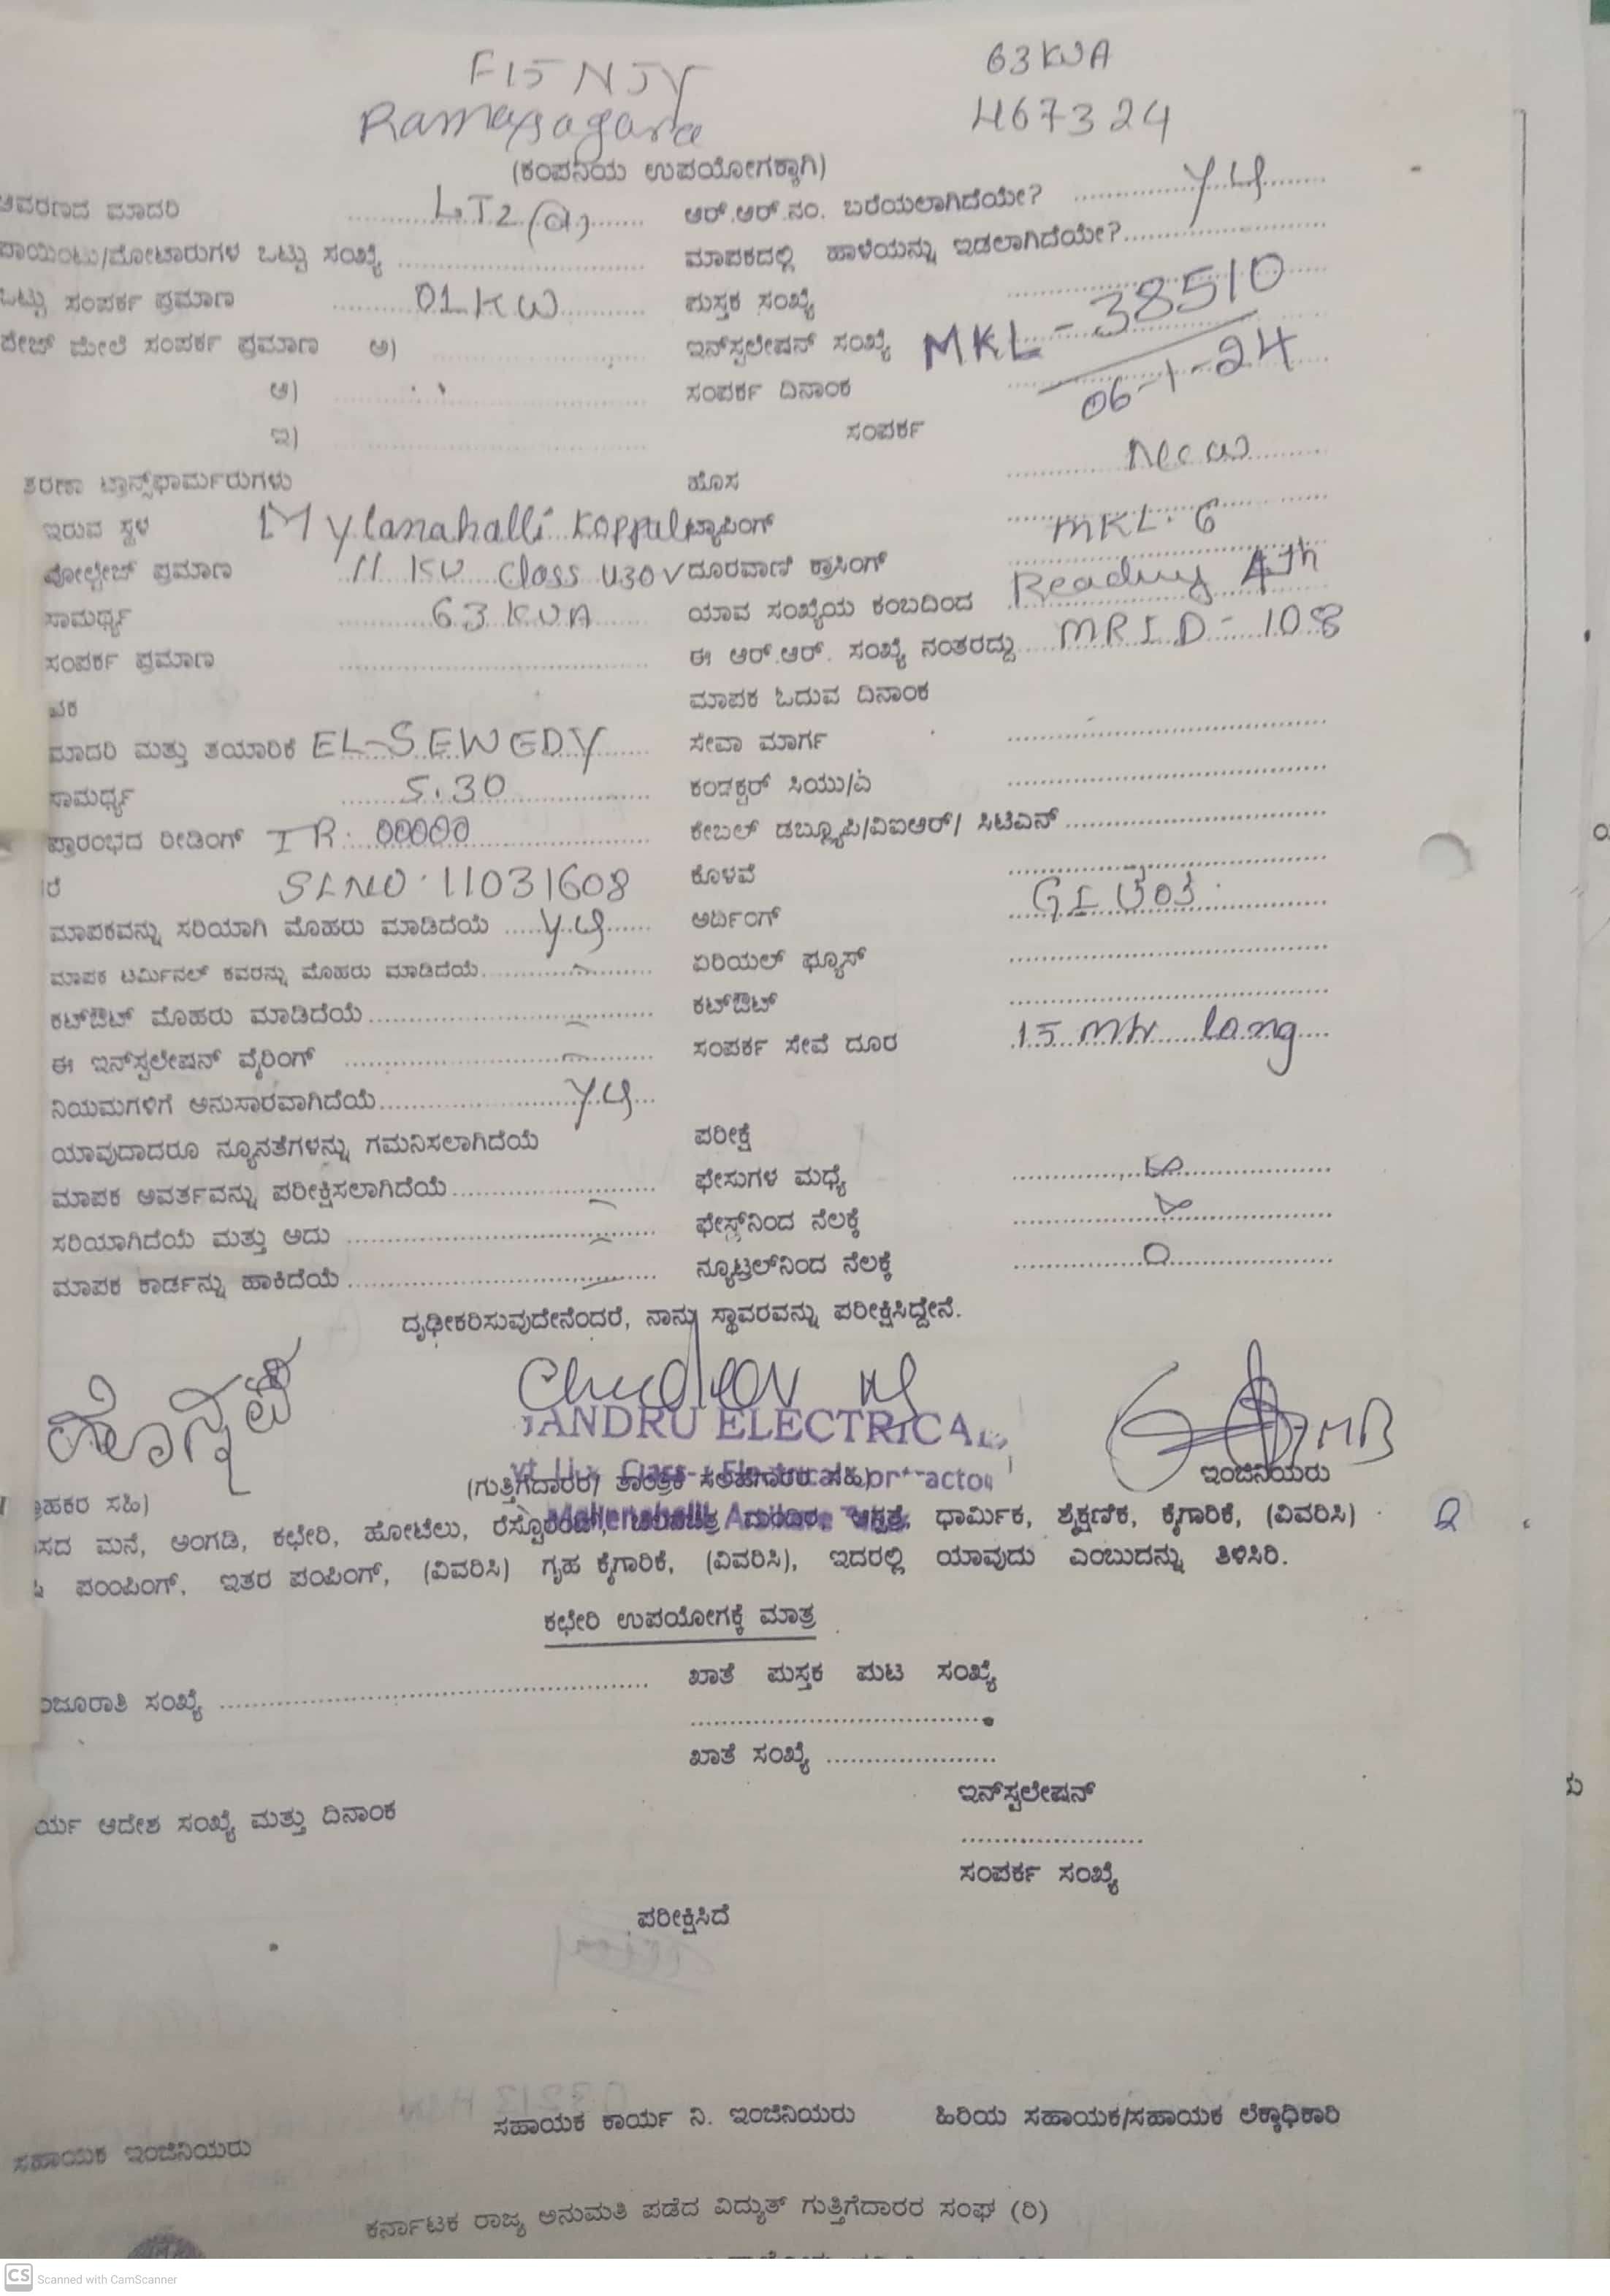 F15 NJY 63 KVA
Ramasagara 467324
(ಕಂಪನಿಯ ಉಪಯೋಗಕ್ಕಾಗಿ)
ಆವರಣದ ಮಾದರಿ LT2(a) ಆರ್.ಆರ್.ನಂ. ಬರೆಯಲಾಗಿದೆಯೇ?
ಪಾಯಿಂಟು/ಮೋಟಾರುಗಳ ಒಟ್ಟು ಸಂಖ್ಯೆ ಮಾಪಕದಲ್ಲಿ ಹಾಳೆಯನ್ನು ಇಡಲಾಗಿದೆಯೇ?
ಒಟ್ಟು ಸಂಪರ್ಕ ಪ್ರಮಾಣ 01 KW ಪುಸ್ತಕ ಸಂಖ್ಯೆ
ಪೇಜ್ ಮೇಲೆ ಸಂಪರ್ಕ ಪ್ರಮಾಣ ಅ) ಇನ್‌ಸ್ಟಲೇಷನ್ ಸಂಖ್ಯೆ MKL-38510
ಆ) ಸಂಪರ್ಕ ದಿನಾಂಕ 06-1-24
ಇ) ಸಂಪರ್ಕ
ಟ್ರಾನ್ಸ್‌ಫಾರ್ಮರುಗಳು ಹೊಸ New
ಇರುವ ಸ್ಥಳ Mylanahalli Koppalu ಟ್ಯಾಪಿಂಗ್ MKL-6
ವೋಲ್ಟೇಜ್ ಪ್ರಮಾಣ 11 KV Class 430V ದೂರವಾಣಿ ಕ್ರಾಸಿಂಗ್
ಸಾಮರ್ಥ್ಯ 63 KVA ಯಾವ ಸಂಖ್ಯೆಯ ಕಂಬದಿಂದ Reading 4th
ಸಂಪರ್ಕ ಪ್ರಮಾಣ ಈ ಆರ್.ಆರ್. ಸಂಖ್ಯೆ ನಂತರದ್ದು MRID-108
ಮಾಪಕ ಓದುವ ದಿನಾಂಕ
ಮಾದರಿ ಮತ್ತು ತಯಾರಿಕೆ EL-SEWEDY ಸೇವಾ ಮಾರ್ಗ
ಸಾಮರ್ಥ್ಯ 5.30 ಕಂಡಕ್ಟರ್ ಸಿಯು/ಎ
ಪ್ರಾರಂಭದ ರೀಡಿಂಗ್ IR: 00000 ಕೇಬಲ್ ಡಬ್ಲ್ಯೂಪಿ/ವಿಐಆರ್/ ಸಿಟಿಎಸ್
SLNO 11031608 ಕೊಳವೆ
ಮಾಪಕವನ್ನು ಸರಿಯಾಗಿ ಮೊಹರು ಮಾಡಿದೆಯೆ ಅರ್ಥಿಂಗ್
ಮಾಪಕ ಟರ್ಮಿನಲ್ ಕವರನ್ನು ಮೊಹರು ಮಾಡಿದೆಯೆ ಏರಿಯಲ್ ಫ್ಯೂಸ್
ಕಟ್‌ಔಟ್ ಮೊಹರು ಮಾಡಿದೆಯೆ ಕಟ್‌ಔಟ್
ಈ ಇನ್‌ಸ್ಟಲೇಷನ್ ವೈರಿಂಗ್ ಸಂಪರ್ಕ ಸೇವೆ ದೂರ 15 mtr long
ನಿಯಮಗಳಿಗೆ ಅನುಸಾರವಾಗಿದೆಯೆ
ಯಾವುದಾದರೂ ನ್ಯೂನತೆಗಳನ್ನು ಗಮನಿಸಲಾಗಿದೆಯೆ ಪರೀಕ್ಷೆ
ಮಾಪಕ ಆವರ್ತವನ್ನು ಪರೀಕ್ಷಿಸಲಾಗಿದೆಯೆ ಫೇಸುಗಳ ಮಧ್ಯೆ
ಸರಿಯಾಗಿದೆಯೆ ಮತ್ತು ಅದು ಫೇಸ್‌ನಿಂದ ನೆಲಕ್ಕೆ
ಮಾಪಕ ಕಾರ್ಡನ್ನು ಹಾಕಿದೆಯೆ ನ್ಯೂಟ್ರಲ್‌ನಿಂದ ನೆಲಕ್ಕೆ 0
ದೃಢೀಕರಿಸುವುದೇನೆಂದರೆ, ನಾನು ಸ್ಥಾವರವನ್ನು ಪರೀಕ್ಷಿಸಿದ್ದೇನೆ.
ANDRU ELECTRICAL
(ಗುತ್ತಿಗೆದಾರರ/ ತಾಂತ್ರಿಕ ಸಲಹೆಗಾರರ ಸಹಿ) ಇಂಜಿನಿಯರು
ಸಹಿ)
ಮನೆ, ಅಂಗಡಿ, ಕಛೇರಿ, ಹೋಟೆಲು, ಧಾರ್ಮಿಕ, ಶೈಕ್ಷಣಿಕ, ಕೈಗಾರಿಕೆ, (ವಿವರಿಸಿ)
ಪಂಪಿಂಗ್, ಇತರ ಪಂಪಿಂಗ್, (ವಿವರಿಸಿ) ಗೃಹ ಕೈಗಾರಿಕೆ, (ವಿವರಿಸಿ), ಇದರಲ್ಲಿ ಯಾವುದು ಎಂಬುದನ್ನು ತಿಳಿಸಿರಿ.
ಕಛೇರಿ ಉಪಯೋಗಕ್ಕೆ ಮಾತ್ರ
ಸಂಖ್ಯೆ ಖಾತೆ ಪುಸ್ತಕ ಪುಟ ಸಂಖ್ಯೆ
ಖಾತೆ ಸಂಖ್ಯೆ
ಇನ್‌ಸ್ಟಲೇಷನ್
ಆದೇಶ ಸಂಖ್ಯೆ ಮತ್ತು ದಿನಾಂಕ
ಸಂಪರ್ಕ ಸಂಖ್ಯೆ
ಪರೀಕ್ಷಿಸಿದೆ
ಸಹಾಯಕ ಇಂಜಿನಿಯರು ಸಹಾಯಕ ಕಾರ್ಯ ನಿ. ಇಂಜಿನಿಯರು ಹಿರಿಯ ಸಹಾಯಕ/ಸಹಾಯಕ ಲೆಕ್ಕಾಧಿಕಾರಿ
ಕರ್ನಾಟಕ ರಾಜ್ಯ ಅನುಮತಿ ಪಡೆದ ವಿದ್ಯುತ್ ಗುತ್ತಿಗೆದಾರರ ಸಂಘ (ರಿ)
CS Scanned with CamScanner